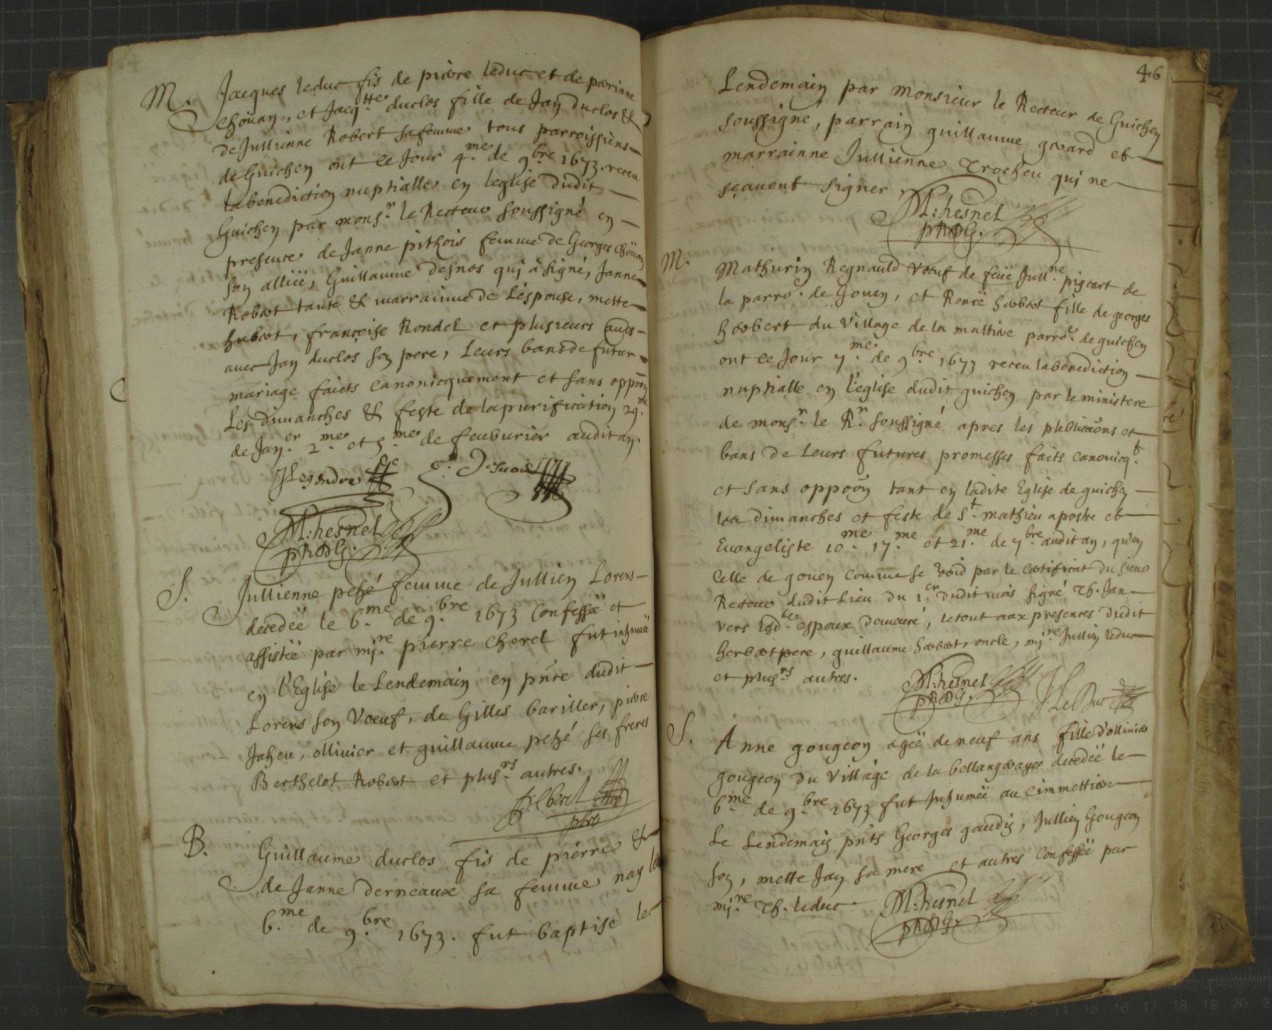 M. Jacques leduc fis de pierre leduc et de perinne
choüan, et Jacq.tte duclos fille de Jan duclos &
de Jullienne Robert sa femme tous parroissiens
de Guichen ont ce jour 4.me de 9.bre 1673. receu
la benediction nuptialle en leglise dudit
Guichen par mons.r le Recteur soussigné en
presence de Janne pithois femme de Georges
son alliée, Guillaume Desnos qui a signé, Janne
Robert tante & marrainne de Lespouse, mette
herbert, françoise Rondel et plusieurs autres
avec Jan duclos son pere, Leurs bans de futur
mariage faicts canonicquement et sans oppon
Les dimanches & feste de la purification 29.
de Jan.er 2.me et 5.me de feuburier audit an.
JLegendre
M: hesnel
S. Jullienne pehé femme de Jullien Lorens
decedée le 6.me de 9.bre 1673 confessée et
assistée par mi.re pierre cherel fut inhumée
en l'Eglise le Lendemain en pnce dudit
Lorens son Voeuf, de Gilles bariller, pierre
Jaheu, ollivier et guillaume pehé ses freres
Berthelot Robert et plus.rs autres.
pbre
B. Guillaume duclos fis de pierre &
de Janne derneaux sa femme nay le
6.me de 9.bre 1673. fut baptise le
46
Lendemain par Monsieur le Recteur de Guichen
soussigné, parrain guillaume gerard et
marrainne Jullienne Trocheu qui ne
sçavent signer
M: hesnel
M. Mathurin Regnauld Voeuf de feüe Jull.ne pigeart de
la parro. de Goven, et Renée herbert fille de georges
herbert du Village de la massiere parro. de guichen
ont ce Jour 7.me de 9.bre 1673 receu la benediction
nuptialle en l'eglise dudit guichen par le ministere
de mons.r le R.r soussigné apres les publicaõns et
bans de Leurs futures promesses faits canonicq.t
et sans oppoõn tant en ladite Eglise de guichen
les dimanches et feste de S.t mathieu apostre et
Evangeliste 10.me 17.me et 21.me de 7.bre audit an, qu'en
celle de goven comme se void par le certificat du sieur
Recteur dudit Lieu du 1.er dudit mois signé Th. Jan
vers espoux, le tout aux presences dudit
herbert pere, guillaume herbert oncle, mi.re Jullien leduc
et plus.rs autres.
M: hesnel JLeDuc
S. Anne gougeon agée de neuf ans fille d'ollivier
gougeon du village de la decedée le
6.me de 9.bre 1673 fut Inhumée au cimmettiere
Le Lendemain pnts Georges gaudin, Jullien Gougeon
son, mette Jan sa mere et autres confessée par
mi.re Th. leduc. M: hesnel